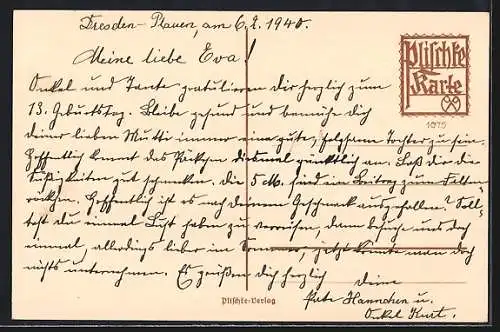 Dresden-Plauen, am 6.2.1940.
Meine liebe Eva!
Plischke
Karte
1075
Onkel und Tante gratulieren Dir herzlich zum
13. Geburtstag. Bleibe gesund und bemühe dich
deiner lieben Mutti immer eine gute, folgsame Tochter zu sein.
Hoffentlich kommt das Päckchen diesmal pünktlich an. Laß dir die
Süßigkeiten gut schmecken. Die 5 M. sind ein Beitrag zum Falten-
röckchen. Hoffentlich ist es nach deinem Geschmack ausgefallen? Soll-
test du einmal Lust haben zu verreisen, dann besuche uns doch
einmal, allerdings lieber im Sommer, jetzt könnte man doch
nichts unternehmen. Es grüßen dich herzlich
deine
Pate Hannchen u.
Onkel Kurt.
Plischke-Verlag